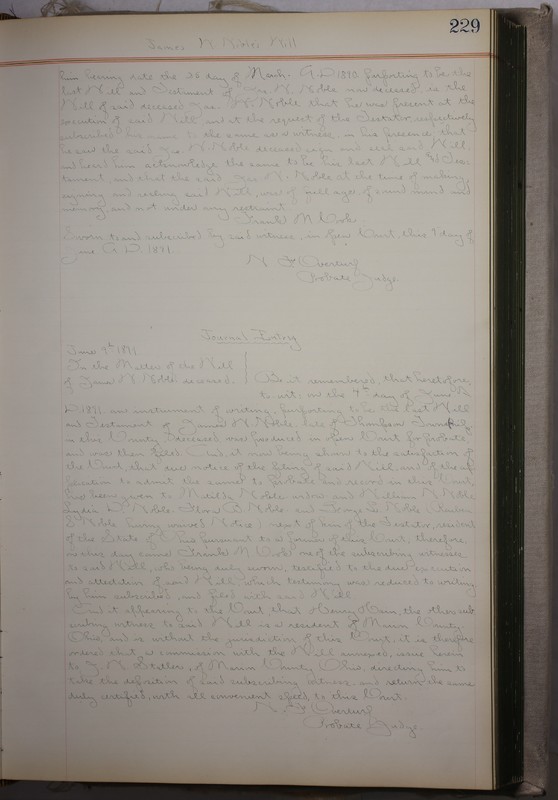 229
James W. Noble's Will
him bearing date the 25 day of March A.D. 1890 purporting to be the
last Will and Testament of Jas. W. Noble now deceased, is the
Will of said deceased Jas. W. Noble that he was present at the
execution of said Will, and at the request of the Testator respectively
subscribed his name to the same as a witness, in his presence, that
he saw the said Jas. W. Noble deceased sign and seal said Will,
and heard him acknowledge the same to be his last Will & Tes-
tament, and that the said Jas. W. Noble at the time of making,
signing and sealing said Will, was of full age, of sound mind and
memory, and not under any restraint.
Frank M
Sworn to and subscribed by said witness, in open Court, this 9 day of
June A.D. 1891.
N. F. Overturf
Probate Judge.
Journal Entry
June 9th 1891
In the Matter of the Will
of James W. Noble deceased.
Be it remembered, that heretofore,
to wit: on the 4th day of June A
D. 1891, an instrument of writing, purporting to be the last Will
and Testament of James W. Noble, late of Thompson Township
in this County, deceased was produced in open Court for probate
and was then filed. And it now being shown to the satisfaction of
the Court that due notice of the filing of said Will, and of the ap
plication to admit the same to Probate and record in this Court,
has been given to Matilda Noble widow and William N. Noble
D. Noble, Flora B. Noble, and George L. Noble
Noble having waived Notice) next of kin of the Testator, resident
of the State of Ohio pursuant to a former of this Court, therefore,
on this day came Frank M. one of the subscribing witnesses
to said Will, who being duly sworn, testified to the due execution
and attestation of said Will which testimony was reduced to writing
by him subscribed, and filed with said Will
And it appearing to the Court that Henry the other sub
scribing witness to said Will is a resident of Marion County,
Ohio, and is without the jurisdiction of this Court, it is therefore
ordered that a commission with the Will annexed, issue herein
to of Marion County, Ohio, directing him to
take the deposition of said subscribing witness, and return the same
duly certified, with all convenient speed, to this Court.
N. F. Overturf
Probate Judge.